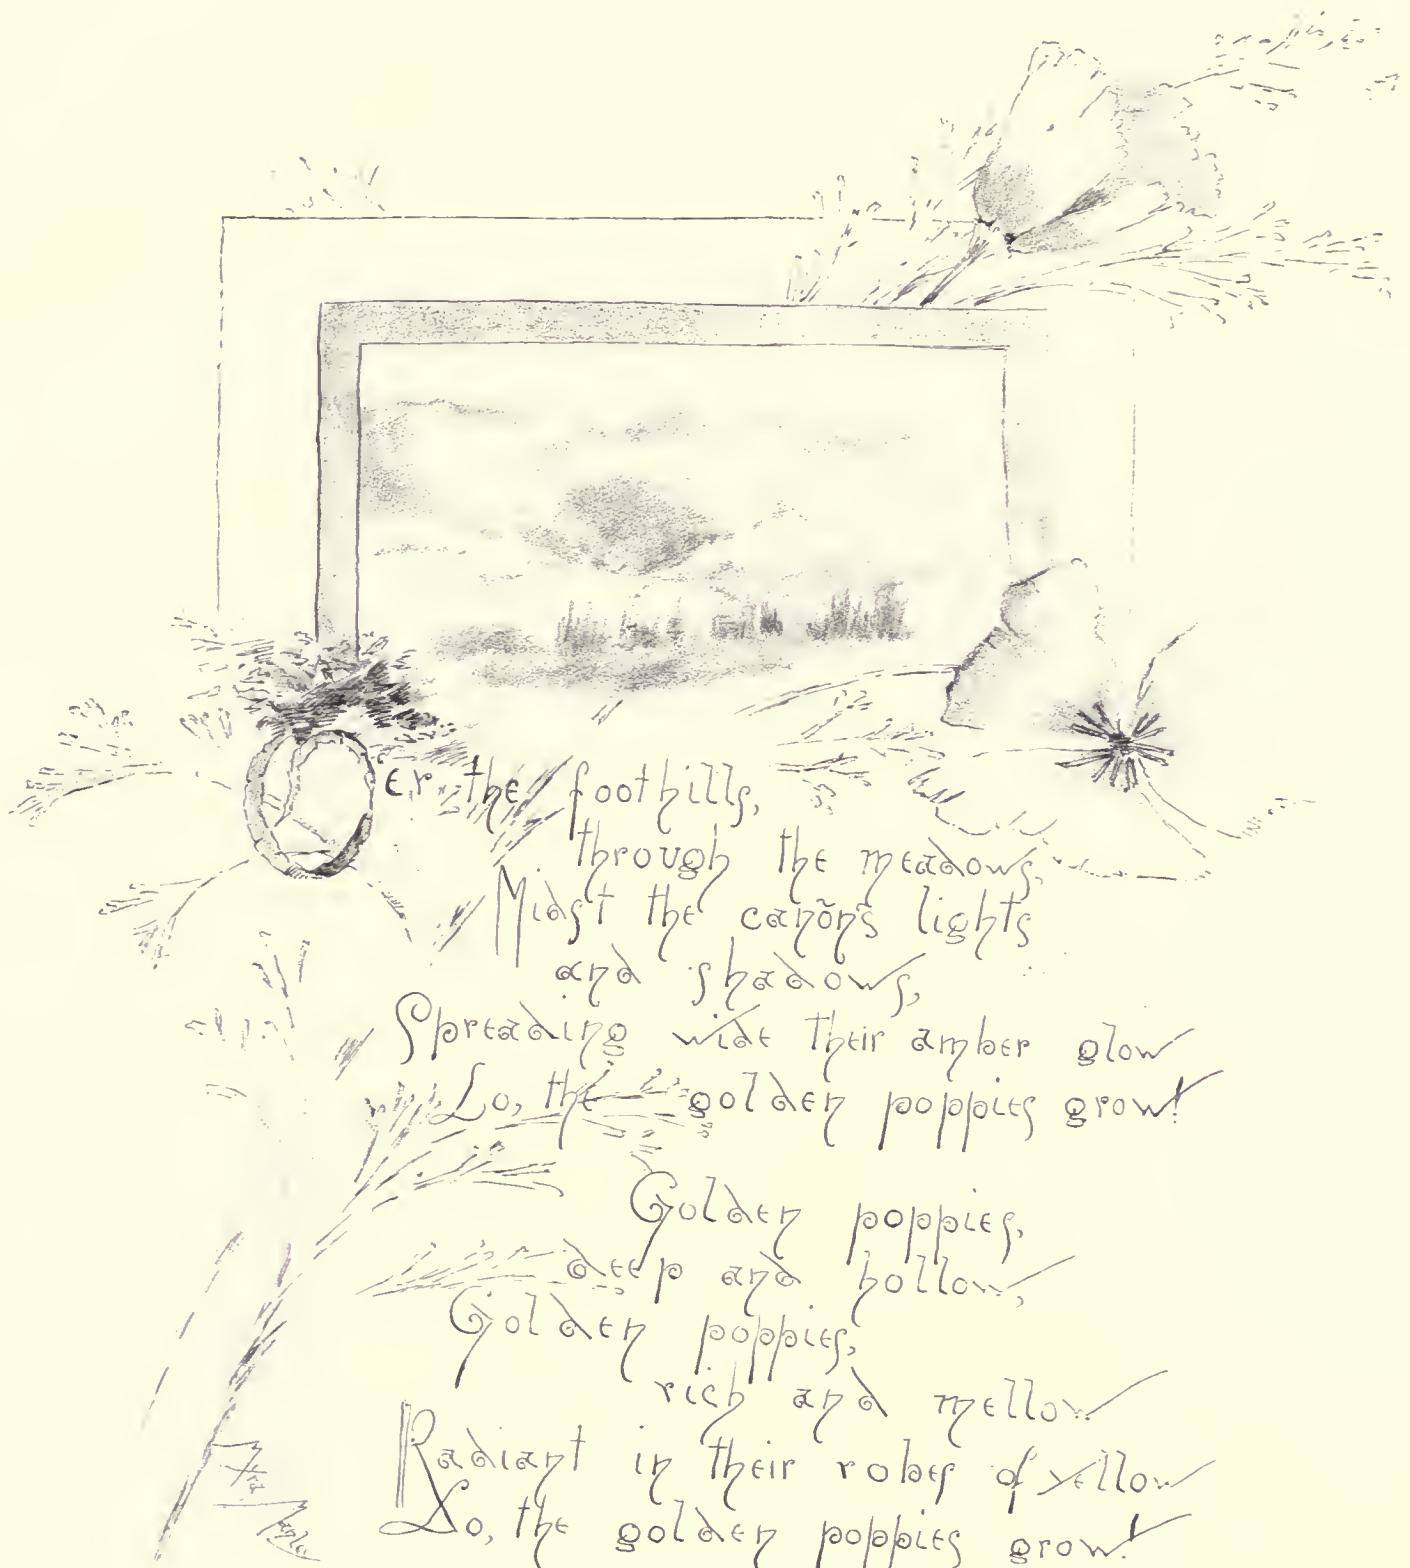 O'er the foothills,
through the meadows,
Midst the cañon's lights
and shadows,
Spreading wide their amber glow
Lo, the golden poppies grow!
Golden poppies,
deep and hollow,
Golden poppies,
rich and mellow
Radiant in their robes of yellow
Lo, the golden poppies grow!